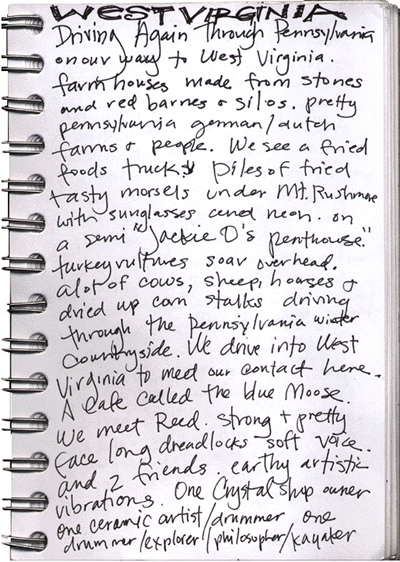 WEST VIRGINIA
Driving Again Through Pennsylvania
on our way to West Virginia.
farm houses made from stones
and red barnes & silos. pretty
pennsylvania german/dutch
farms & people. We see a fried
foods truck. Piles of fried
tasty morsels under Mt. Rushmore
with sunglasses and neon. on
a semi "Jackie O's penthouse."
turkey vultures soar overhead.
a lot of cows, sheep, houses &
dried up corn stalks driving
through the Pennsylvania winter
countryside. We drive into West
Virginia to meet our contact here.
A Cafe called the blue Moose.
We meet Reed. strong + pretty
face long dreadlocks soft voice.
and 2 friends. earthy artistic
vibrations. One Crystal shop owner
one ceramic artist/drummer one
drummer/explorer/philosopher/kayaker